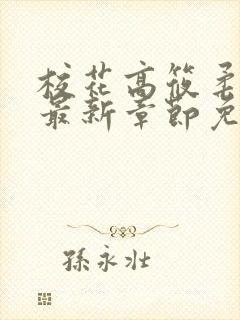 校花高筱柔
最新章節免
孫永壯